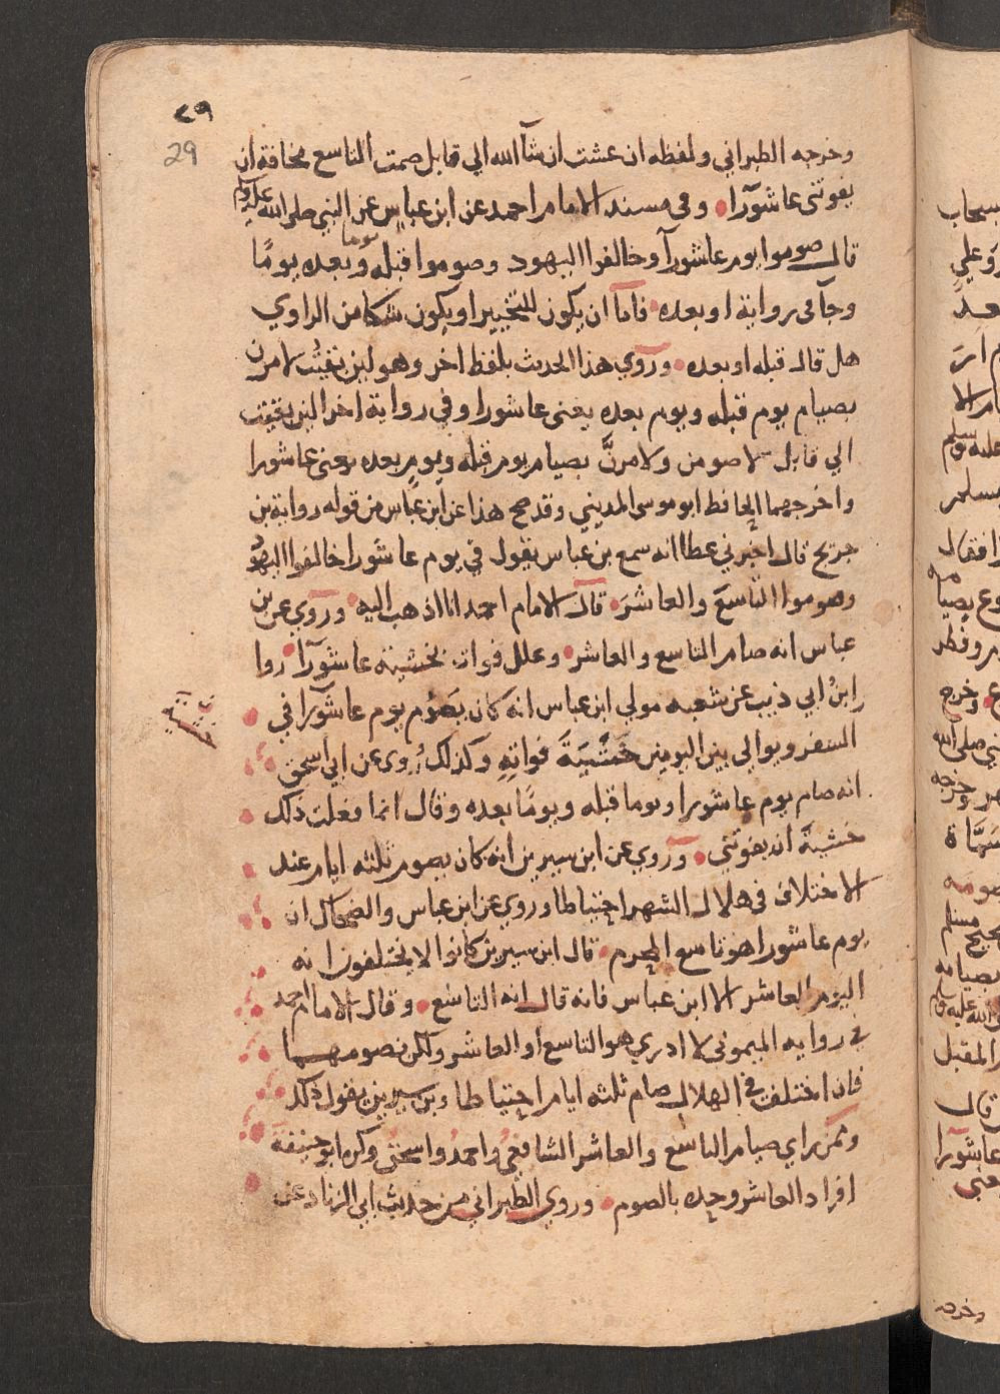 ٢٩
29
وخرجه الطبراني ولفظه ان عشت ان شآ الله الي قابل صمت التاسع مخافة ان
يفوتني عاشورآ وفي مسند الامام احمد عن ابن عباس عن النبي صلى الله عليه وسلم
قال صوموا يوم عاشورآ وخالفوا اليهود وصوموا قبله يوما وبعده يومًا
وجآ في رواية او بعده فاما ان يكون للتخيير او يكون شكا من الراوي
هل قال قبله او بعده وروي هذا الحديث بلفظ اخر وهو لين بقيت لامرن
بصيام يوم قبله ويوم بعده يعني عاشورا وفي رواية اخرا لين بقيت
الي قابل لاصومن ولامرنَّ بصيام يوم قبله ويوم بعده يعني عاشورا
واخرجهما الحافظ ابو موسى المديني وقد صح هذا عن ابن عباس من قوله رواية بن
جريج قال اخبرني عطا انه سمع بن عباس يقول في يوم عاشورا خالفوا اليهود
وصوموا التاسعَ والعاشرَ قال الامام احمد انا اذهب اليه وروي عن بن
عباس انه صام التاسع والعاشر وعلل فوات بخشيته عاشورآ روا
ابن ابي ذيب عن شعبه مولي ابن عباس انه كان يصوم يوم عاشورآ في
خشية
السفر ويوالي بين اليومين خَشْيَةَ فواتِهِ وكذلك رُوي عن ابي اسحق
انه صام يوم عاشورا ويوما قبله ويومًا بعده وقال انما فعلت ذلك
خشيةَ ان يفوتني وروي عن ابن سيرين انه كان يصوم ثلثه ايام عند
الاختلاف في هلال الشهر احتياطا وروي عن ابن عباس والضحاك ان
يوم عاشورا هو تاسع المحرم قال ابن سيرين كانوا لا يختلفون انه
اليوم العاشر الا ابن عباس فانه قال انه التاسع وقال الامام احمد
في رواية الميموني لا ادري هو التاسع او العاشر ولكن نصومهما
فان اختلف في الهلال صام ثلثه ايام احتياطا وبن سيرين يقول ذلك
وممن راي صيام التاسع والعاشر الشافعي واحمد واسحق وكره ابو حنيفة
افراد العاشر وحده بالصوم وروي الطبراني من حديث ابي الزناد عن